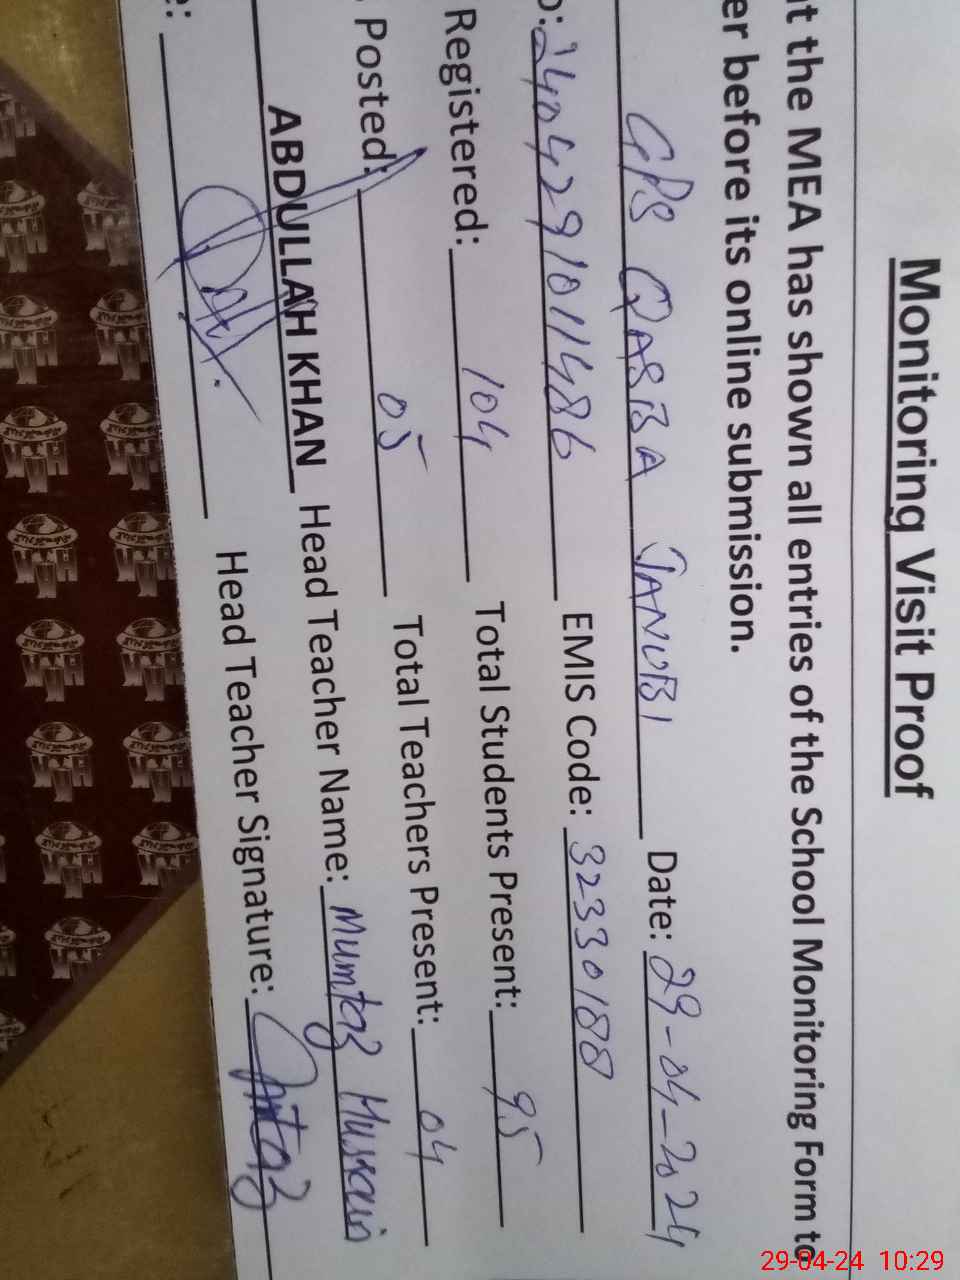 Monitoring Visit Proof
at the MEA has shown all entries of the School Monitoring Form to
er before its online submission.
GPS QASBA JANUBI Date: 29-04-2024
o: 2404291011486 EMIS Code: 32330188
Registered: 104 Total Students Present: 95
Posted: 05 Total Teachers Present: 04
ABDULLAH KHAN Head Teacher Name: Mumtaz Hussain
e: Head Teacher Signature: Mumtaz
29-04-24 10:29